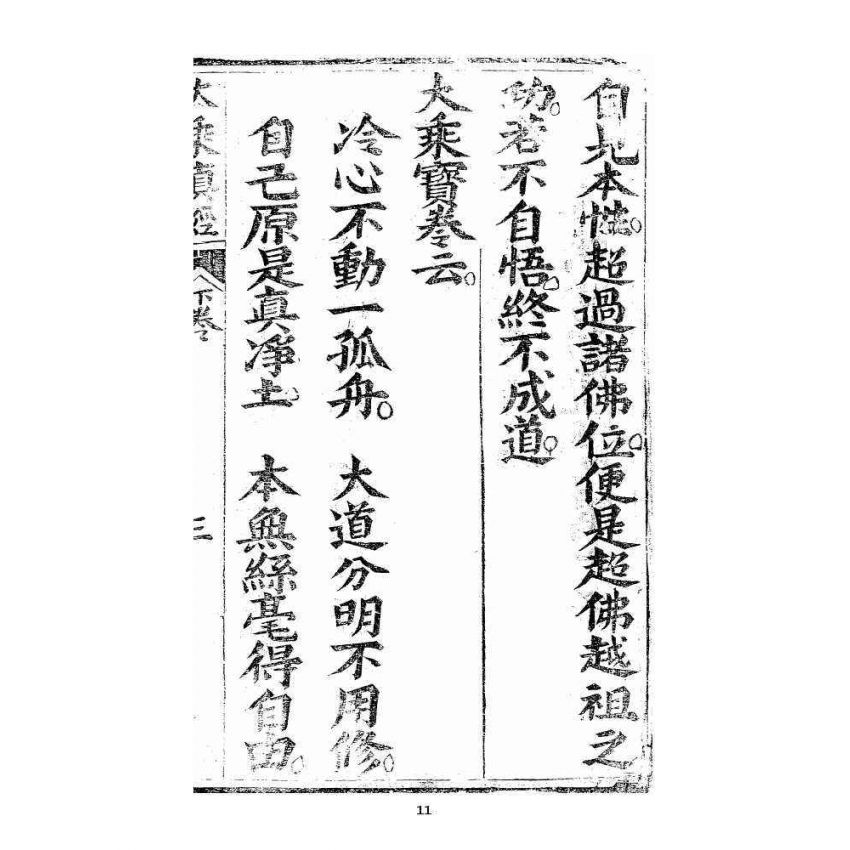 自此本性。超過諸佛位。便是超佛越祖之
功。若不自悟。終不成道。
大乘寶卷云。
冷心不動一孤舟。 大道分明不用修。
自己原是眞淨土 本無絲毫得自由。
大乘眞經 下卷 三
11